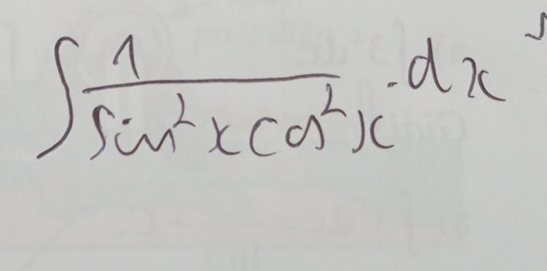 ∫ 1/(sin²x cos²x) · dx